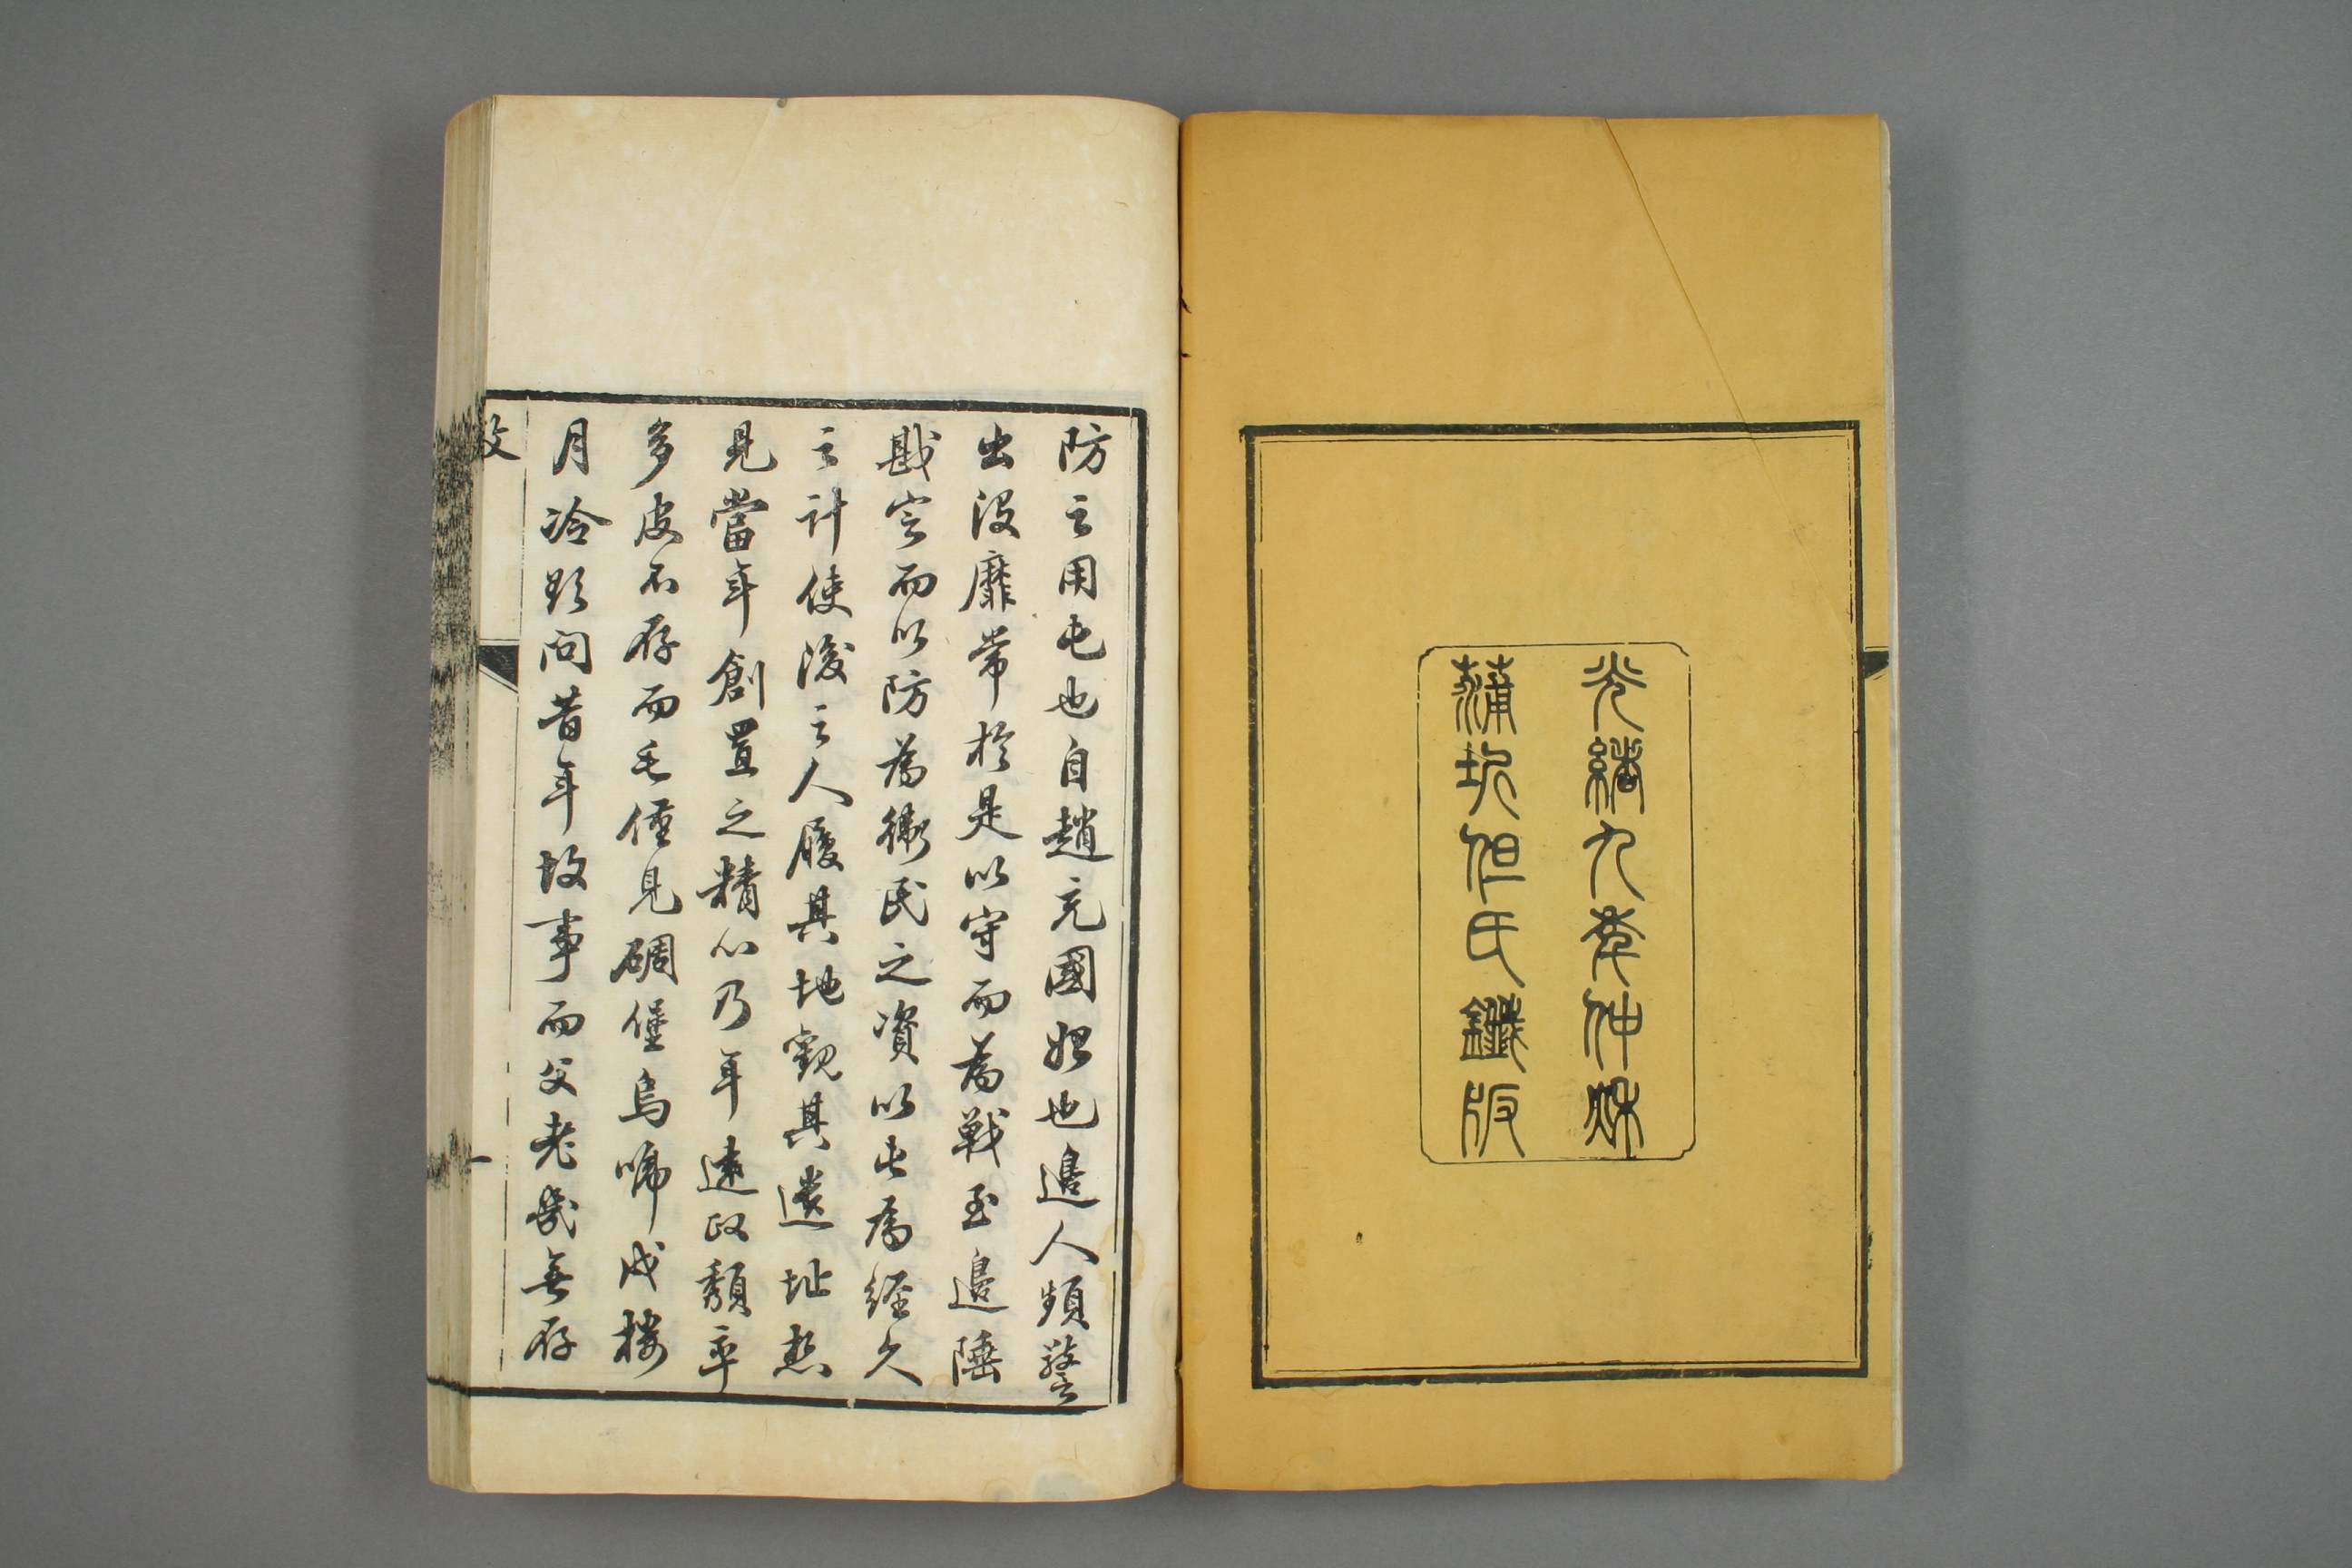 光緒九年仲秌
蒲圻但氏鐵版
防之用屯也自趙充國始也邉人頻警
出没靡常於是以守而為戰至邉陲
戡定而以防為衛民之資以屯為經久
之計使後之人履其地觀其遺址想
見當年創置之精心乃年遠政頽率
多皮不存而毛僅見碉堡烏啼戍樓
月冷欵問昔年故事而父老幾無存